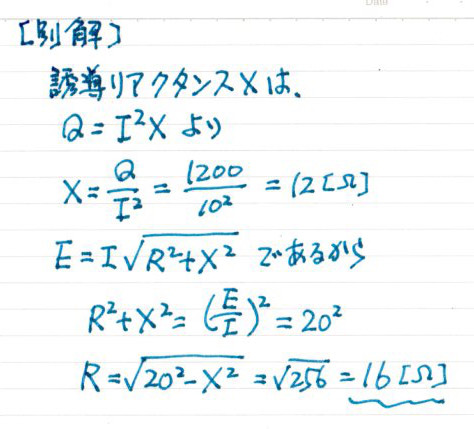 [別解]
誘導リアクタンスXは、
Q=I²Xより
X=Q/I²=1200/10²=12[Ω]
E=I√(R²+X²) であるから
R²+X²=(E/I)²=20²
R=√(20²-X²)=√256=16[Ω]